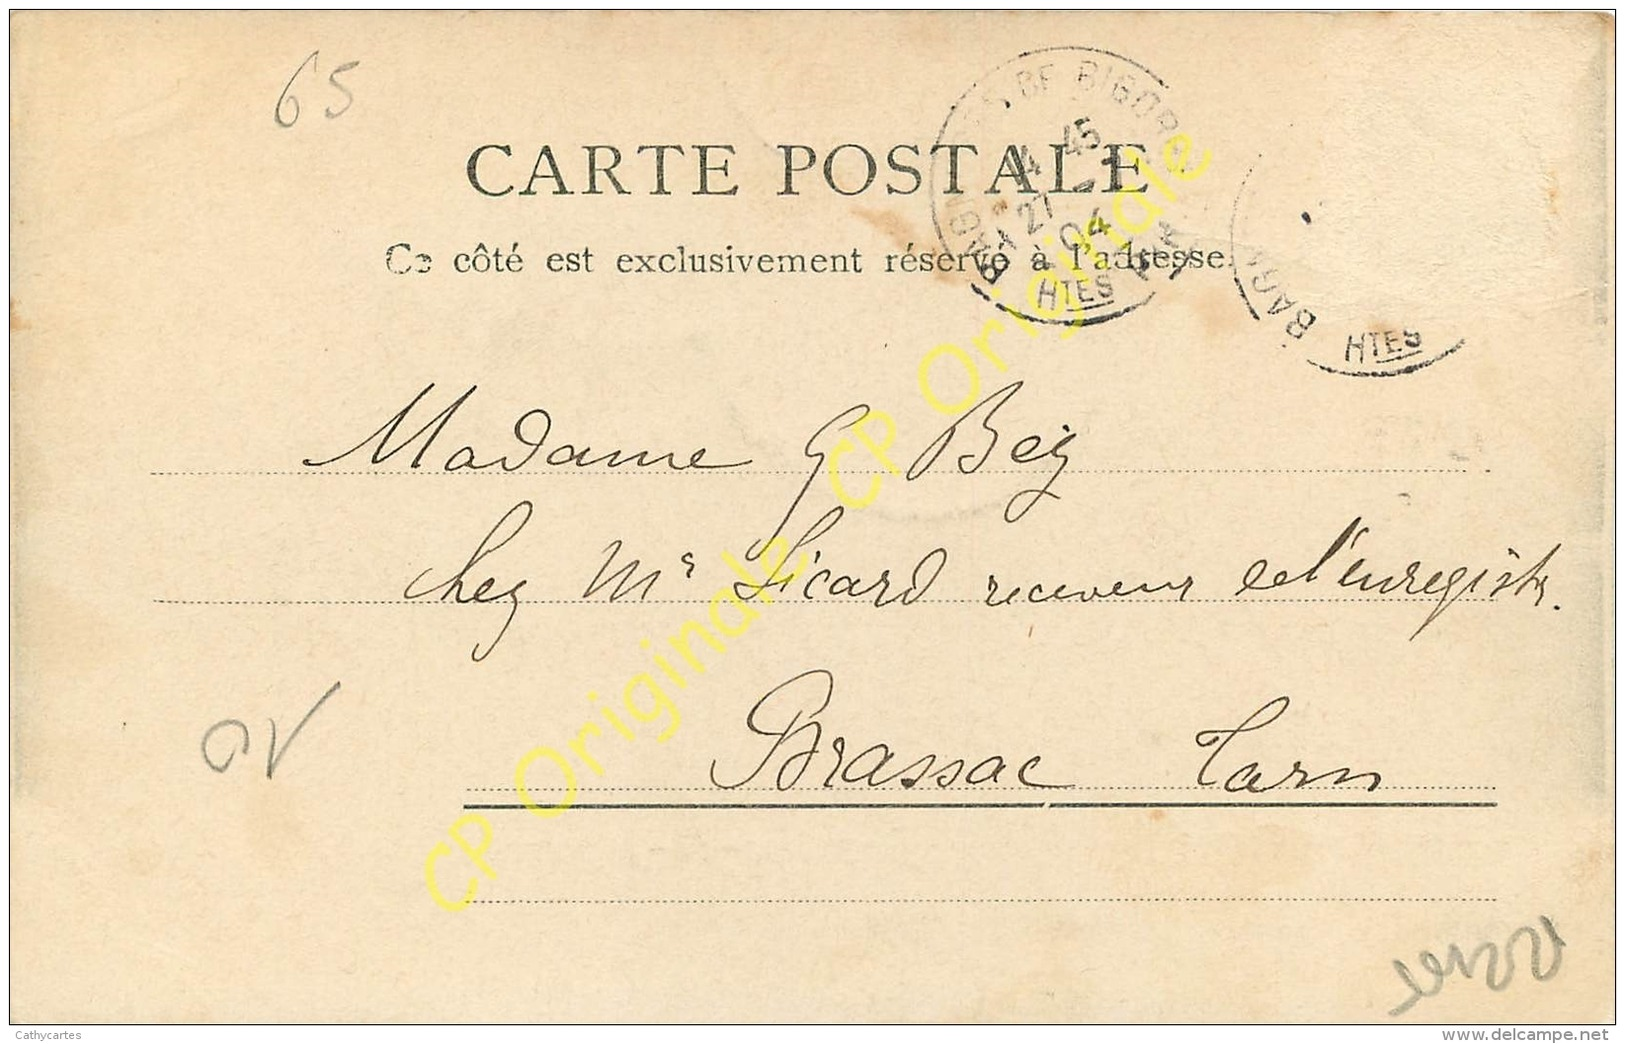 65
CARTE POSTALE
Ce côté est exclusivement réservé à l'adresse.
BAGNÈRES DE BIGORRE
14 45
27 -1
04
HTES PYRÉNÉES
BAGN
HTES
Madame G Bég
chez Mr Sicard receveur de l'enregistr.
Brassac Tarn
CP Originale CP Originale CP Originale
Cathycartes
www.delcampe.net